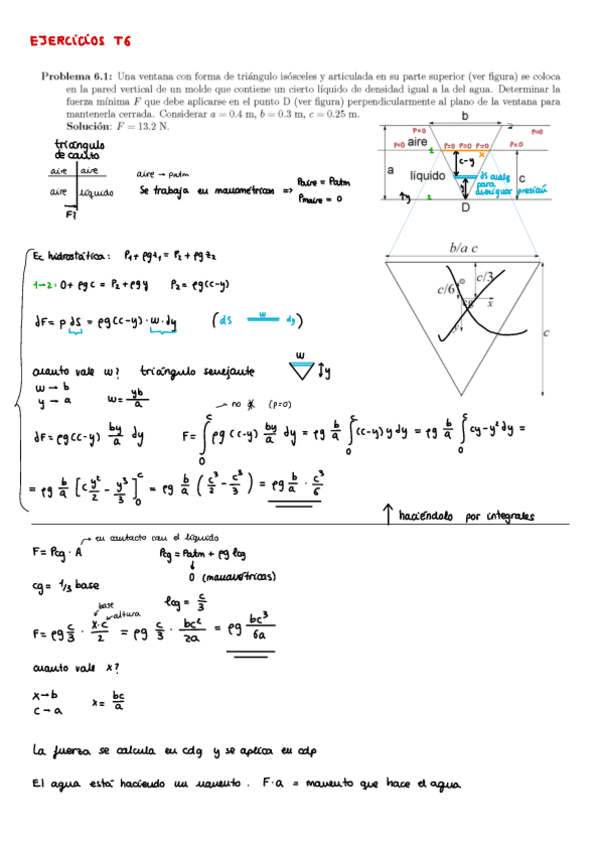 EJERCICIOS T6
Problema 6.1: Una ventana con forma de triángulo isósceles y articulada en su parte superior (ver figura) se coloca
en la pared vertical de un molde que contiene un cierto líquido de densidad igual a la del agua. Determinar la
fuerza mínima F que debe aplicarse en el punto D (ver figura) perpendicularmente al plano de la ventana para
mantenerla cerrada. Considerar a = 0.4 m, b = 0.3 m, c = 0.25 m.
Solución: F = 13.2 N.
b
P=0
P=0
P=0 aire
P=0 P=0 P=0
P=0
1
x
c-y
a
líquido
ds
para
c
D
triángulo
de canto
aire | aire
aire | líquido
F?
aire → patm
Se trabaja en manométricas =>
Paire = Patm
Pmaire = 0
Ec hidrostática: P₁ + ρgz₁ = P₂ + ρgz₂
1-2: 0 + ρgc = P₂ + ρgy P₂ = ρg(c-y)
dF = p ds = ρg(c-y)·w·dy (ds w dy)
b/a c
c/3
c/6
x
c
cuanto vale w? triángulo semejante
w
y
w → b
y → a
w = yb/a
→ no (p=0)
dF = ρg(c-y) by/a dy F = ∫₀ᶜ ρg(c-y) by/a dy = ρg b/a ∫₀ᶜ (c-y)y dy = ρg b/a ∫₀ᶜ cy-y² dy =
= ρg b/a [c y²/2 - y³/3]₀ᶜ = ρg b/a (c³/2 - c³/3) = ρg b/a · c³/6
↑ haciéndolo por integrales
→ en contacto con el líquido
F = Pcg · A
Pcg = Patm + ρg lcg
0 (manométricas)
cg = 1/3 base
lcg = c/3
base
altura
F = ρg c/3 · x·c/2 = ρg c/3 · bc²/2a = ρg bc³/6a
cuanto vale x?
x → b
c → a
x = bc/a
La fuerza se calcula en cdg y se aplica en cdp
El agua está haciendo un momento. F·a = momento que hace el agua